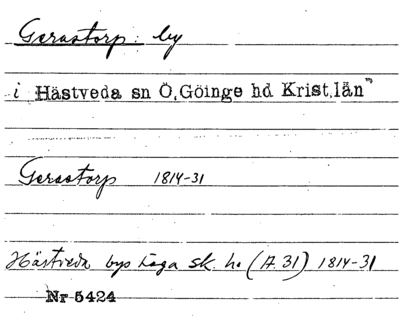 Gerastorp: by
i Hästveda sn Ö. Göinge hd Krist. län"
Gerastorp 1814-31
Hästveda bys laga sk. h. (A 31) 1814-31
Nr 5424